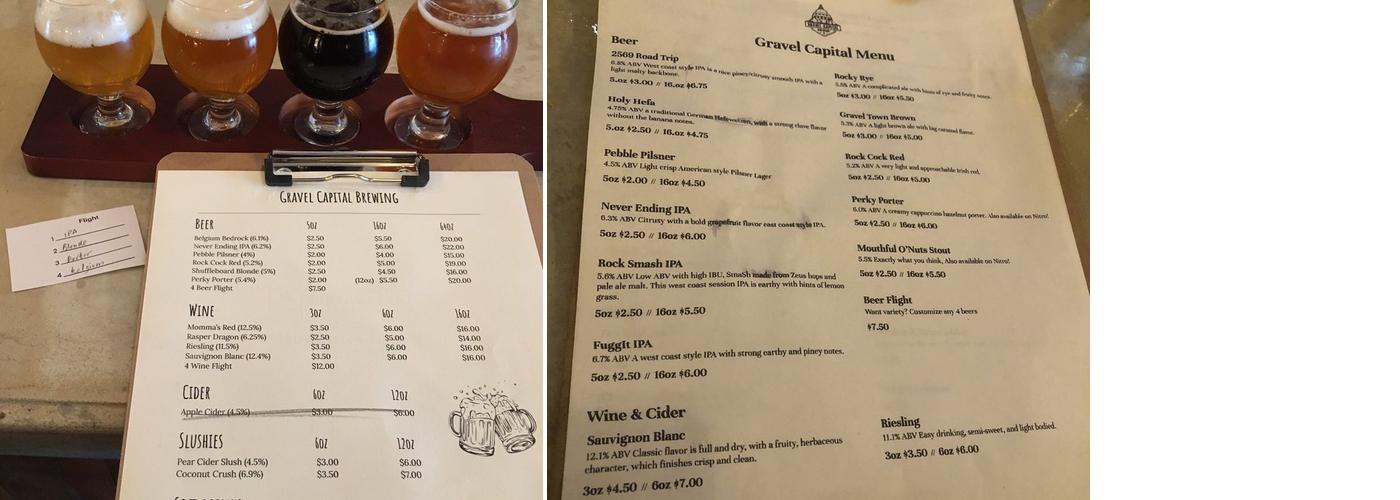 Flight
1 IPA
2 Blonde
3 Porter
4 Belgium
GRAVEL CAPITAL BREWING
BEER 5oz 16oz 64oz
Belgium Bedrock (6.1%) $2.50 $5.50 $20.00
Never Ending IPA (6.2%) $2.50 $6.00 $22.00
Pebble Pilsner (4%) $2.00 $4.00 $15.00
Rock Cock Red (5.2%) $2.00 $5.00 $19.00
Shuffleboard Blonde (5%) $2.50 $4.50 $16.00
Perky Porter (5.4%) $2.00 (12oz) $5.50 $20.00
4 Beer Flight $7.50
WINE 3oz 6oz 16oz
Momma's Red (12.5%) $3.50 $6.00 $16.00
Rasper Dragon (6.25%) $2.50 $5.00 $14.00
Riesling (11.5%) $3.50 $6.00 $16.00
Sauvignon Blanc (12.4%) $3.50 $6.00 $16.00
4 Wine Flight $12.00
CIDER 6oz 12oz
Apple Cider (4.5%) $3.00 $6.00
SLUSHIES 6oz 12oz
Pear Cider Slush (4.5%) $3.00 $6.00
Coconut Crush (6.9%) $3.50 $7.00
Gravel Capital Menu
Beer
2569 Road Trip
6.8% ABV West coast style IPA is a nice piney/citrusy smooth IPA with a
light malty backbone.
5.oz $3.00 // 16.oz $6.75
Holy Hefa
4.75% ABV a traditional German Hefeweizen, with a strong clove flavor
without the banana notes.
5.oz $2.50 // 16.oz $4.75
Pebble Pilsner
4.5% ABV Light crisp American style Pilsner Lager
5oz $2.00 // 16oz $4.50
Never Ending IPA
6.3% ABV Citrusy with a bold grapefruit flavor east coast style IPA.
5oz $2.50 // 16oz $6.00
Rock Smash IPA
5.6% ABV Low ABV with high IBU, Smash made from Zeus hops and
pale ale malt. This west coast session IPA is earthy with hints of lemon
grass.
5oz $2.50 // 16oz $5.50
FuggIt IPA
6.7% ABV A west coast style IPA with strong earthy and piney notes.
5oz $2.50 // 16oz $6.00
Rocky Rye
5.5% ABV A complicated ale with hints of rye and fruity notes.
5oz $3.00 // 16oz $5.50
Gravel Town Brown
5.3% ABV A light brown ale with big caramel flavor.
5oz $3.00 // 16oz $5.00
Rock Cock Red
5.2% ABV A very light and approachable Irish red.
5oz $2.50 // 16oz $5.00
Perky Porter
6.0% ABV A creamy cappuccino hazelnut porter. Also available on Nitro!
5oz $2.50 // 16oz $6.00
Mouthful O'Nuts Stout
5.5% Exactly what you think, Also available on Nitro!
5oz $2.50 // 16oz $5.50
Beer Flight
Want variety? Customize any 4 beers
$7.50
Wine & Cider
Sauvignon Blanc
12.1% ABV Classic flavor is full and dry, with a fruity, herbaceous
character, which finishes crisp and clean.
3oz $4.50 // 6oz $7.00
Riesling
11.1% ABV Easy drinking, semi-sweet, and light bodied.
3oz $3.50 // 6oz $6.00